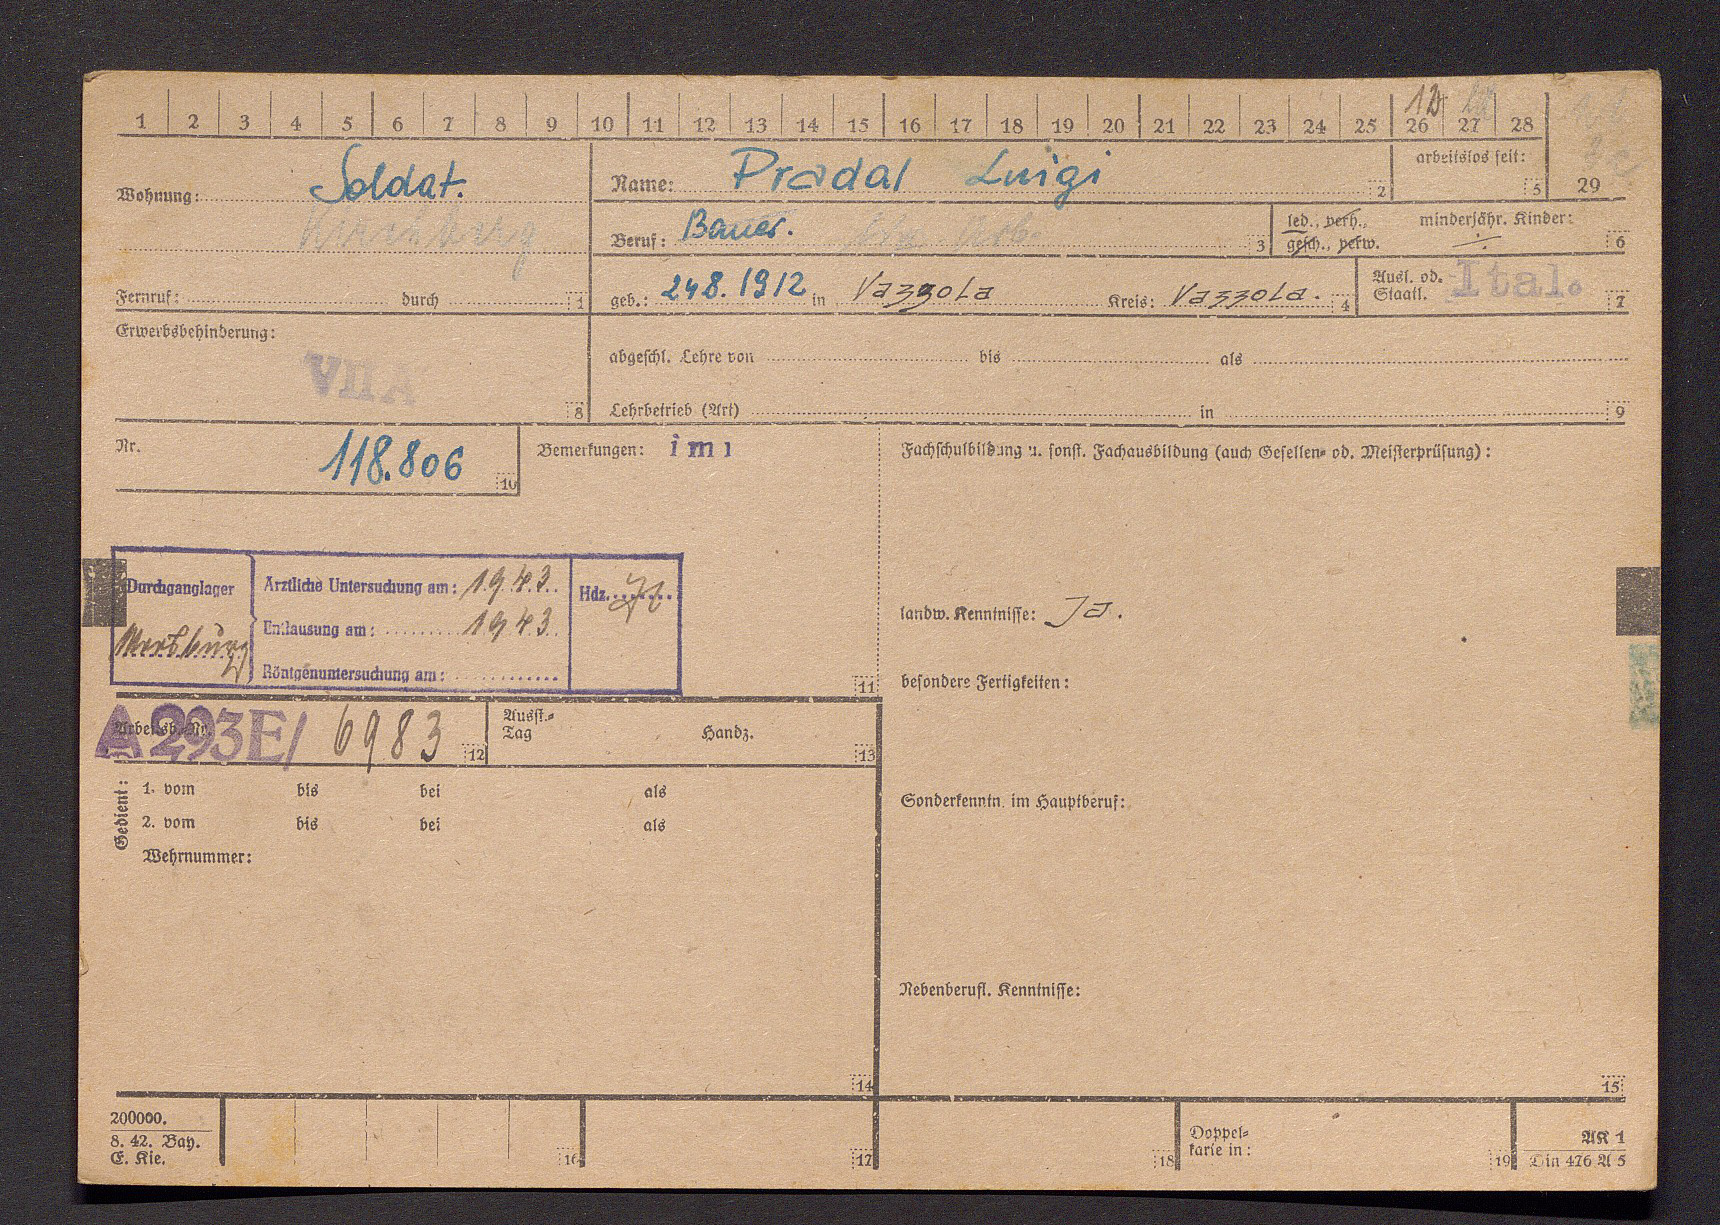 1 2 3 4 5 6 7 8 9 10 11 12 13 14 15 16 17 18 19 20 21 22 23 24 25 26 27 28 29
12
Wohnung: Soldat.
Name: Pradal Luigi 2
arbeitslos seit: 5
Beruf: Bauer. 3
led., verh., gesch., verw.
minderjähr. Kinder: ÷ 6
Fernruf: durch 1
geb.: 24 8. 1912 in Vazzola Kreis: Vazzola. 4
Ausl. od. Staatl. Ital. 7
Erwerbsbehinderung:
VII A
8
abgeschl. Lehre von bis als
Lehrbetrieb (Art) in 9
Nr. 118.806 10
Bemerkungen: imi
Fachschulbildung u. sonst. Fachausbildung (auch Gesellen- od. Meisterprüfung):
Durchganglager
Ärztliche Untersuchung am: 1943
Entlausung am: 1943
Röntgenuntersuchung am:
Hdz.
11
landw. Kenntnisse: Ja.
besondere Fertigkeiten:
Arbeitsb.-Nr. A 293E/ 6983 12
Ausst.-Tag Handz. 13
Gedient:
1. vom bis bei als
2. vom bis bei als
Wehrnummer:
Sonderkenntn. im Hauptberuf:
Nebenberufl. Kenntnisse:
14
15
200000.
8. 42. Bay.
E. Kie.
16
17
18
Doppelkarte in: 19
AK 1
Din 476 A 5